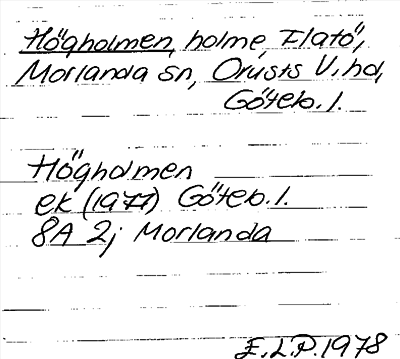 Högholmen, holme, Flatö,
Morlanda sn, Orusts V. hd,
Göteb. l.
Högholmen
ek (1977) Göteb. l.
8A 2j Morlanda
E.L.P. 1978